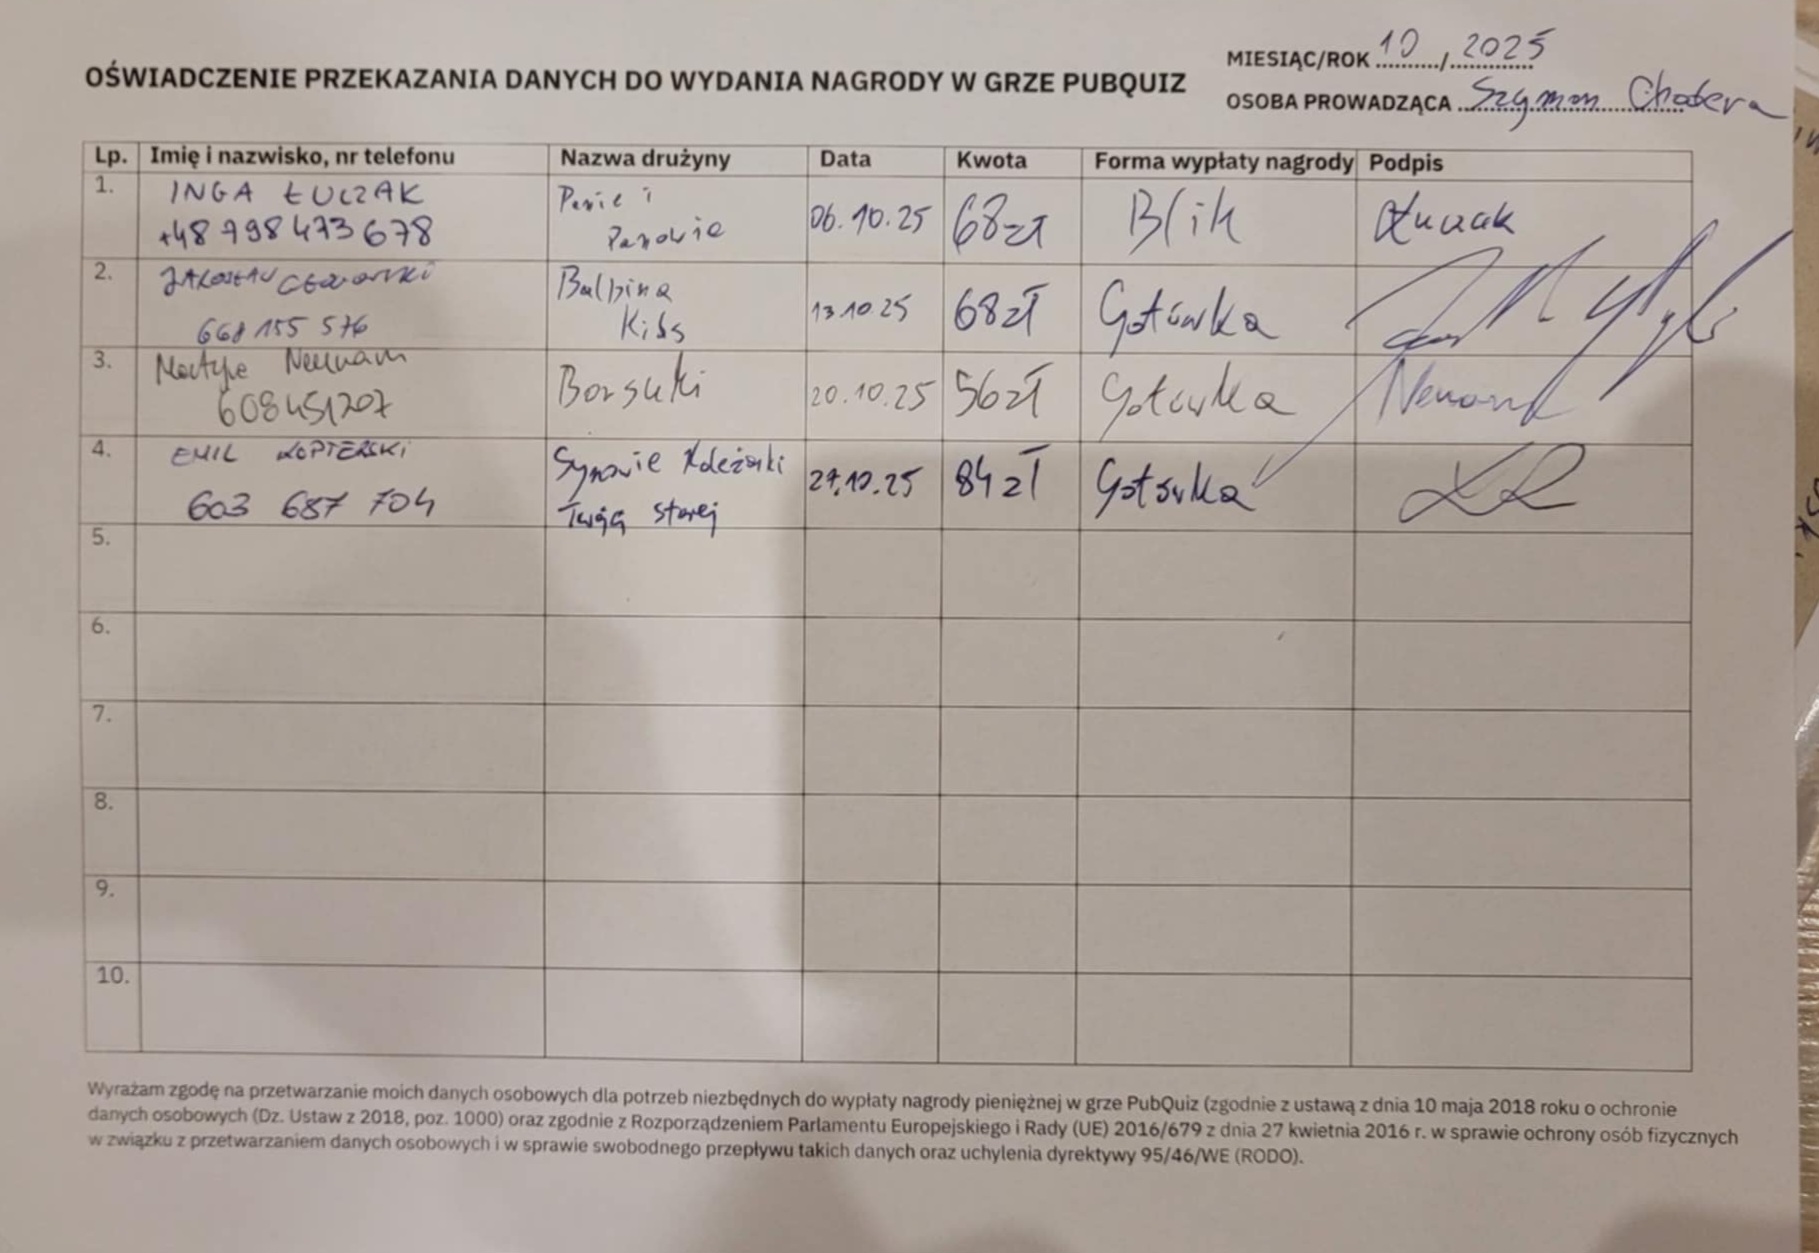 OŚWIADCZENIE PRZEKAZANIA DANYCH DO WYDANIA NAGRODY W GRZE PUBQUIZ
MIESIĄC/ROK 10 / 2025
OSOBA PROWADZĄCA Szymon Chodera
Lp. Imię i nazwisko, nr telefonu Nazwa drużyny Data Kwota Forma wypłaty nagrody Podpis
1. INGA ŁUCZAK Panie i
+48 798 473 678 Panowie 06.10.25 68zł Blik Łuczak
2. Balbina
668 155 576 Kiss 13.10.25 68zł Gotówka
3. Neuman
608451207 Borsuki 20.10.25 56zł Gotówka
4. EMIL Synowie Koleżanki
603 687 704 Twojej Starej 27.10.25 84zł Gotówka
5.
6.
7.
8.
9.
10.
Wyrażam zgodę na przetwarzanie moich danych osobowych dla potrzeb niezbędnych do wypłaty nagrody pieniężnej w grze PubQuiz (zgodnie z ustawą z dnia 10 maja 2018 roku o ochronie
danych osobowych (Dz. Ustaw z 2018, poz. 1000) oraz zgodnie z Rozporządzeniem Parlamentu Europejskiego i Rady (UE) 2016/679 z dnia 27 kwietnia 2016 r. w sprawie ochrony osób fizycznych
w związku z przetwarzaniem danych osobowych i w sprawie swobodnego przepływu takich danych oraz uchylenia dyrektywy 95/46/WE (RODO).